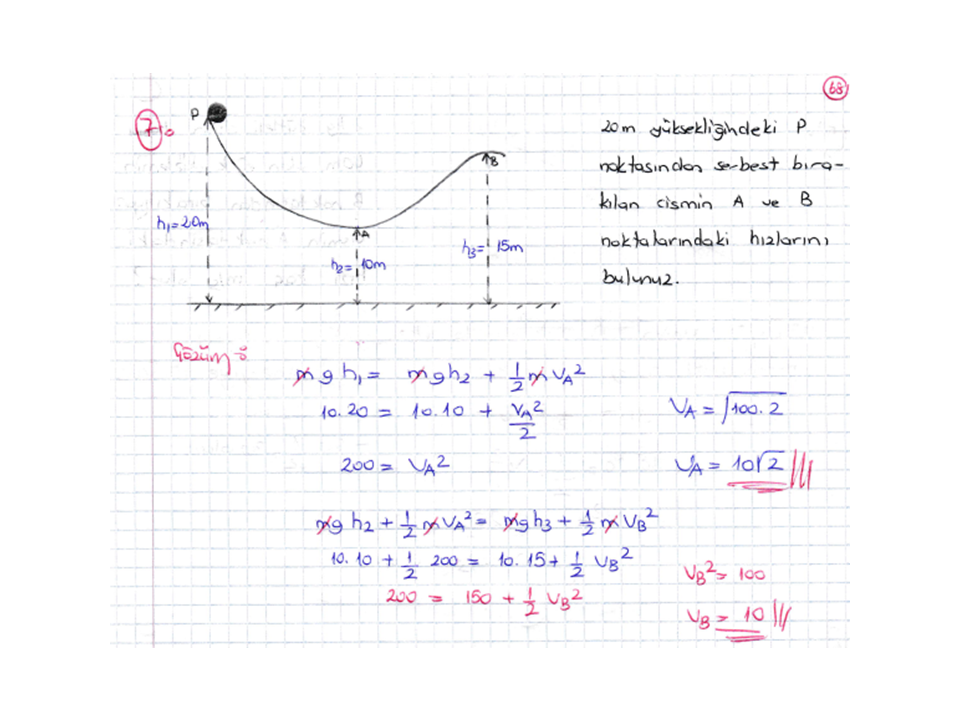 68
7.
P
A
B
h₁=20m
h₂= 10m
h₃= 15m
20m yüksekliğindeki P
noktasından serbest bıra-
kılan cismin A ve B
noktalarındaki hızlarını
bulunuz.
Çözüm:
mgh₁ = mgh₂ + 1/2 mVA²
10.20 = 10.10 + VA²/2
200 = VA²
VA = √100.2
VA = 10√2
mgh₂ + 1/2 mVA² = mgh₃ + 1/2 mVB²
10.10 + 1/2 200 = 10.15 + 1/2 VB²
200 = 150 + 1/2 VB²
VB² = 100
VB = 10